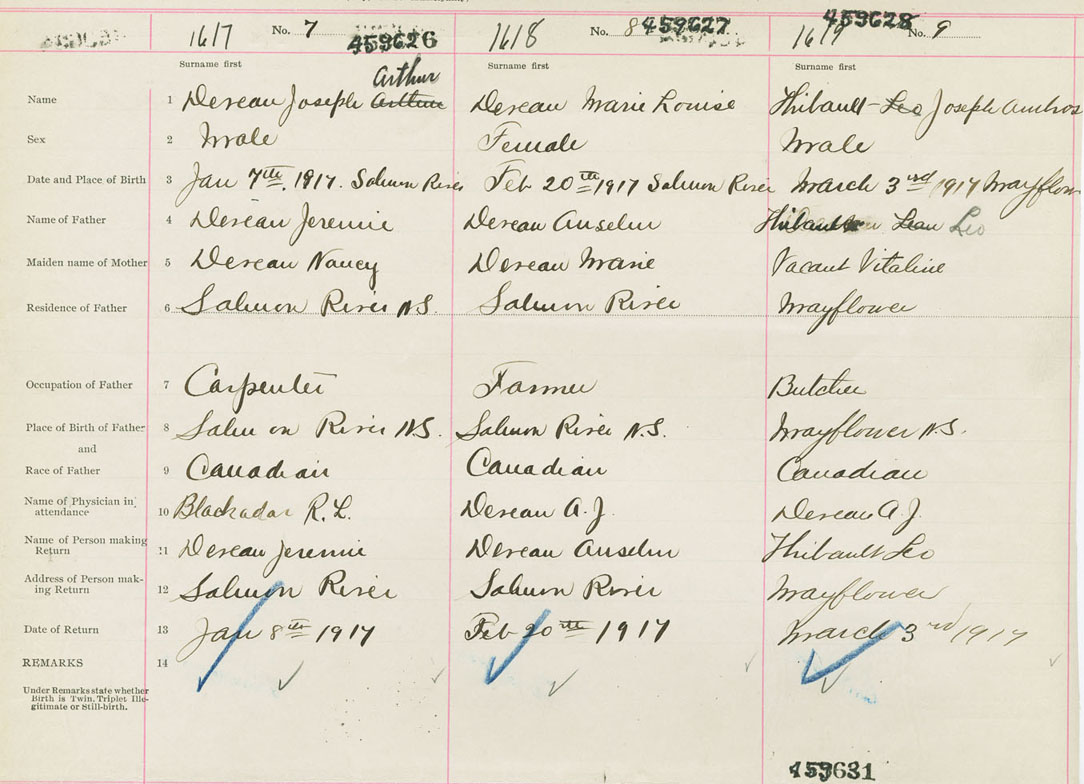 1617 No. 7 459626 1618 No. 8 459627 1619 459628 No. 9
Surname first Surname first Surname first
Arthur
Name 1 Dereau Joseph Arthur Dereau Marie Louise Thibault Leo Joseph Ambros
Sex 2 Male Female Male
Date and Place of Birth 3 Jan 7th, 1917. Salmon River Feb 20th 1917 Salmon River March 3rd 1917 Mayflow
Name of Father 4 Dereau Jeremie Dereau Anselm Thibault Leo
Maiden name of Mother 5 Dereau Nancy Dereau Marie Vacant Vitaline
Residence of Father 6 Salmon River N.S. Salmon River Mayflower
Occupation of Father 7 Carpenter Farmer Butcher
Place of Birth of Father 8 Salmon River N.S. Salmon River N.S. Mayflower N.S.
and
Race of Father 9 Canadian Canadian Canadian
Name of Physician in attendance 10 Blackadar R. L. Dereau A. J. Dereau A. J.
Name of Person making Return 11 Dereau Jeremie Dereau Anselm Thibault Leo
Address of Person mak-ing Return 12 Salmon River Salmon River Mayflower
Date of Return 13 Jan 8th 1917 Feb 20th 1917 March 3rd 1917
REMARKS 14
Under Remarks state whether
Birth is Twin, Triplet Ille-
gitimate or Still-birth.
459631